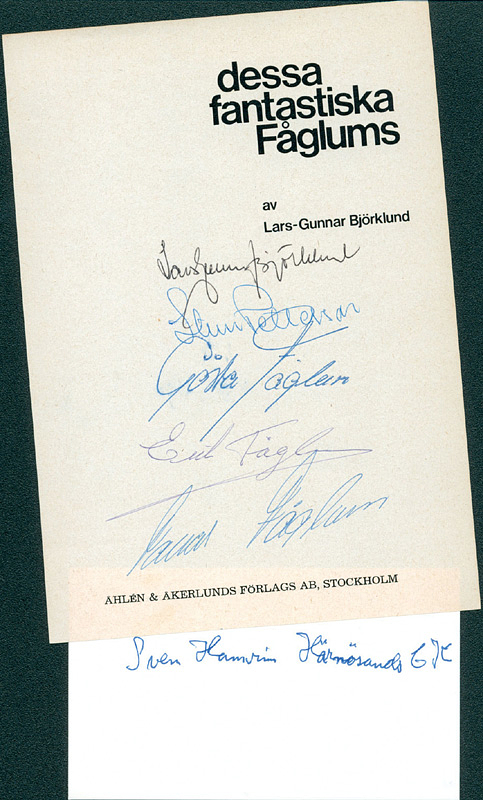 dessa
fantastiska
Fåglums
av
Lars-Gunnar Björklund
Lars Gunnar Björklund
Sture Pettersson
Gösta Fåglum
Erik Fåglum
Tomas Fåglum
AHLÉN & ÅKERLUNDS FÖRLAGS AB, STOCKHOLM
Sven Hamrin Härnösands CK